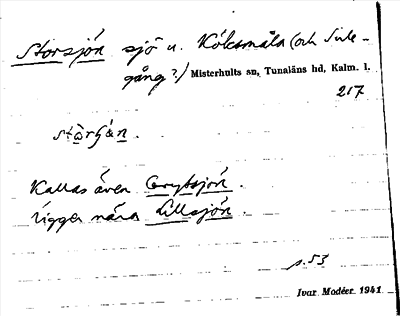 Storsjön sjö u. Kölcsmåla (och Sule-
gång?) Misterhults sn, Tunaläns hd, Kalm. l.
217
Kallas även Grytsjön.
Ligger nära Lillsjön.
s. 53
Ivar Modéer 1941